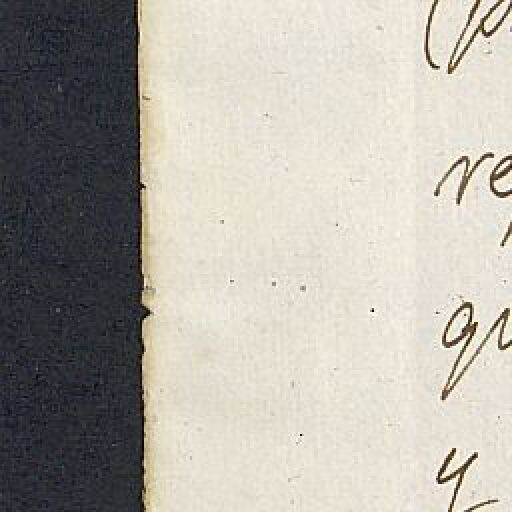 (p
re
qu
y